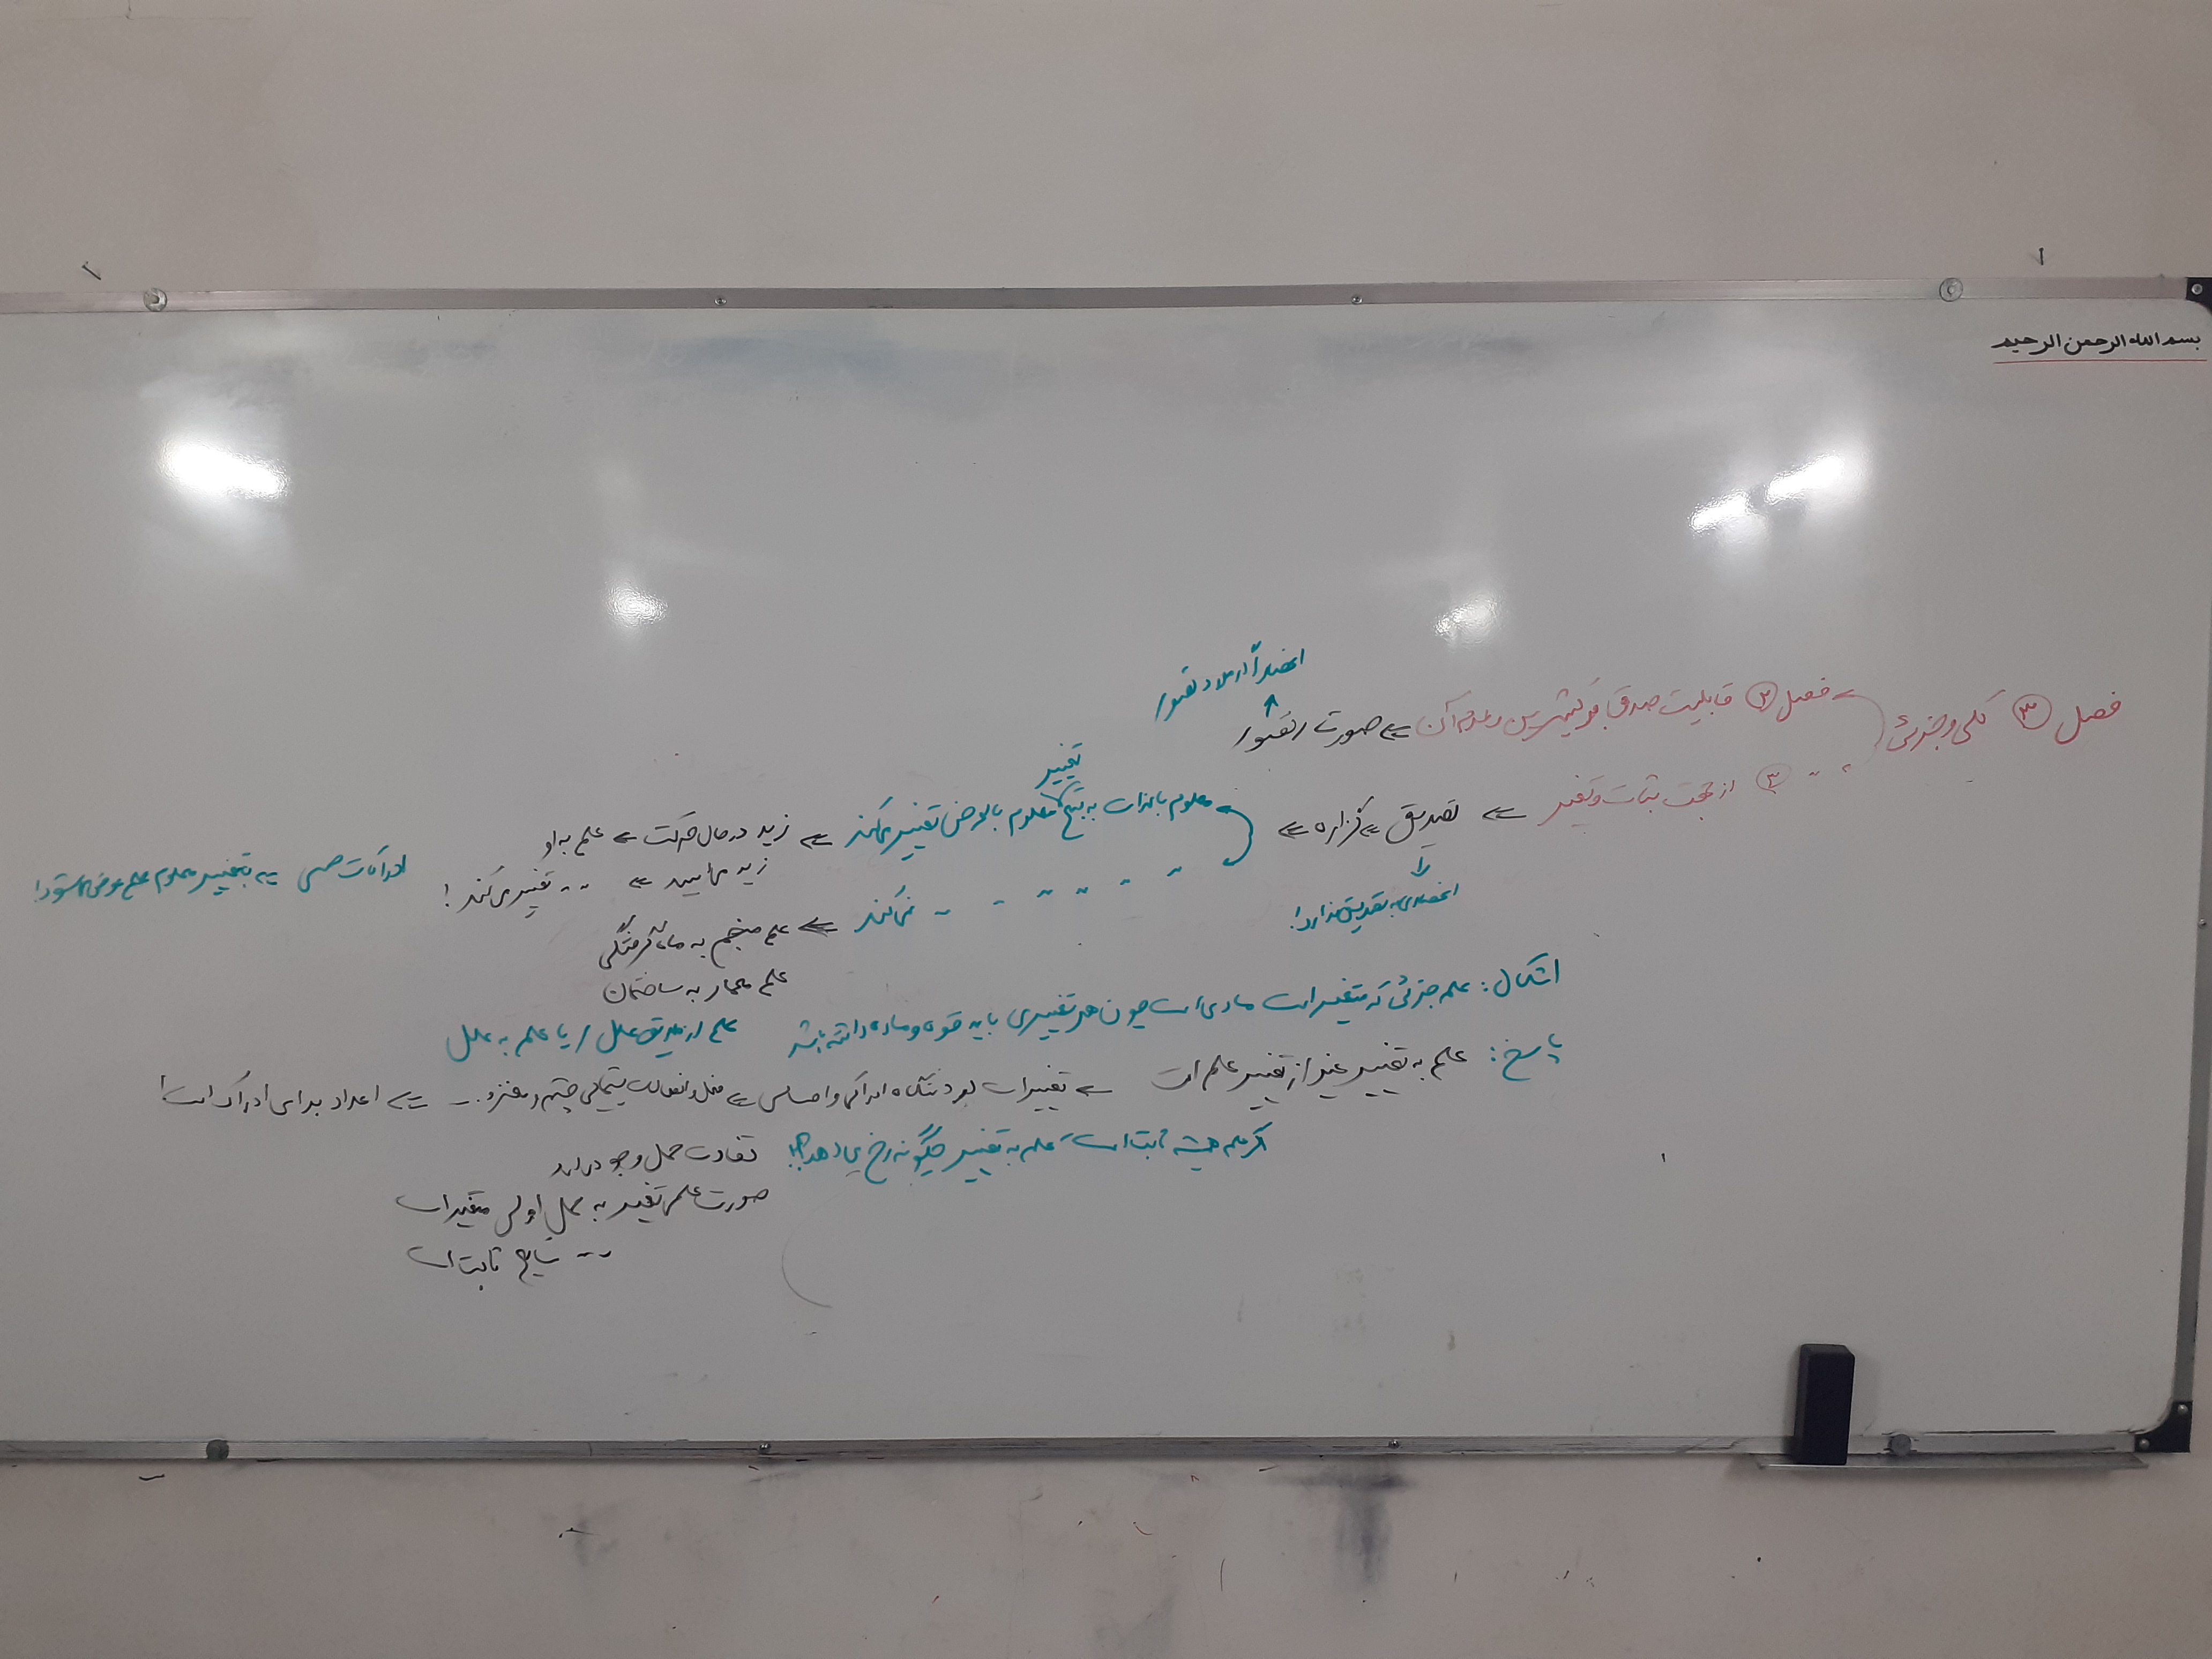 بسم الله الرحمن الرحیم
فصل ③ کلی و جزئی
فصل ② قابلیت صدق بر کثیرین و عدم آن ⇐ صورت / تصور
انحصاراً در تصور
〃 〃 ③ از جهت ثبات و تغیر ⇐ تصدیق ⇐ گزاره ⇐
انحصاری به تصدیق ندارد!
تغییر
معلوم بالذات به تبع معلوم بالعرض تغییر می‌کند ⇐ زید در حال حرکت ← علم به او
زید می‌آیید ⇐ 〃 〃 تغییر می‌کند!
ادراکات حسی ⇐ با تغییر معلوم علم عوض می‌شود!
〃 〃 〃 〃 〃 〃 〃 نمی‌کند ⇐ علم منجم به ماه گرفتگی
علم معمار به ساختمان
علم از طریق علل / یا علم به علل
اشکال: علم جزئی که متغیر است مادی است چون هر تغییری باید قوه و ماده داشته باشد
پاسخ: علم به تغییر غیر از تغییر علم است ← تغییرات در دستگاه ادراکی و احساسی ⇐ فعل و انفعالات شیمیایی چشم و مغز و ... ⇐ اعداد برای ادراک است!
اگر علم همیشه ثابت است، علم به تغییر چگونه رخ می‌دهد؟! تفاوت حمل وجود دارد
صورت علمی تغییر به حمل اولی متغیر است
〃 〃 شایع ثابت است